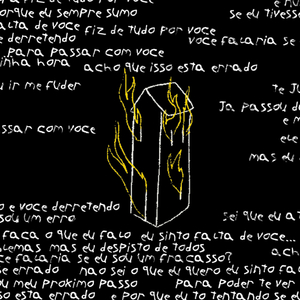 e nu
porque eu sempre sumo
se eu tivess
falta de voce
fiz de tudo por voce
e derretendo
voce falaria se
para passar com voce
minha hora
acho que isso esta errado
u ir me fuder
te Ju
Ja passou d
e m
ssar com voce
ele
mas eu
o e voce derretendo
sou um erro
sei que eu a
faca o que eu falo eu sinto falta de voce...
blemas mas eu despisto de todos
ce falaria se eu sou um fracasso?
ach
se errado nao sei o que quero eu sinto fal
ou meu proximo passo
para poder te ver
sto errado e por que eu to tentando se